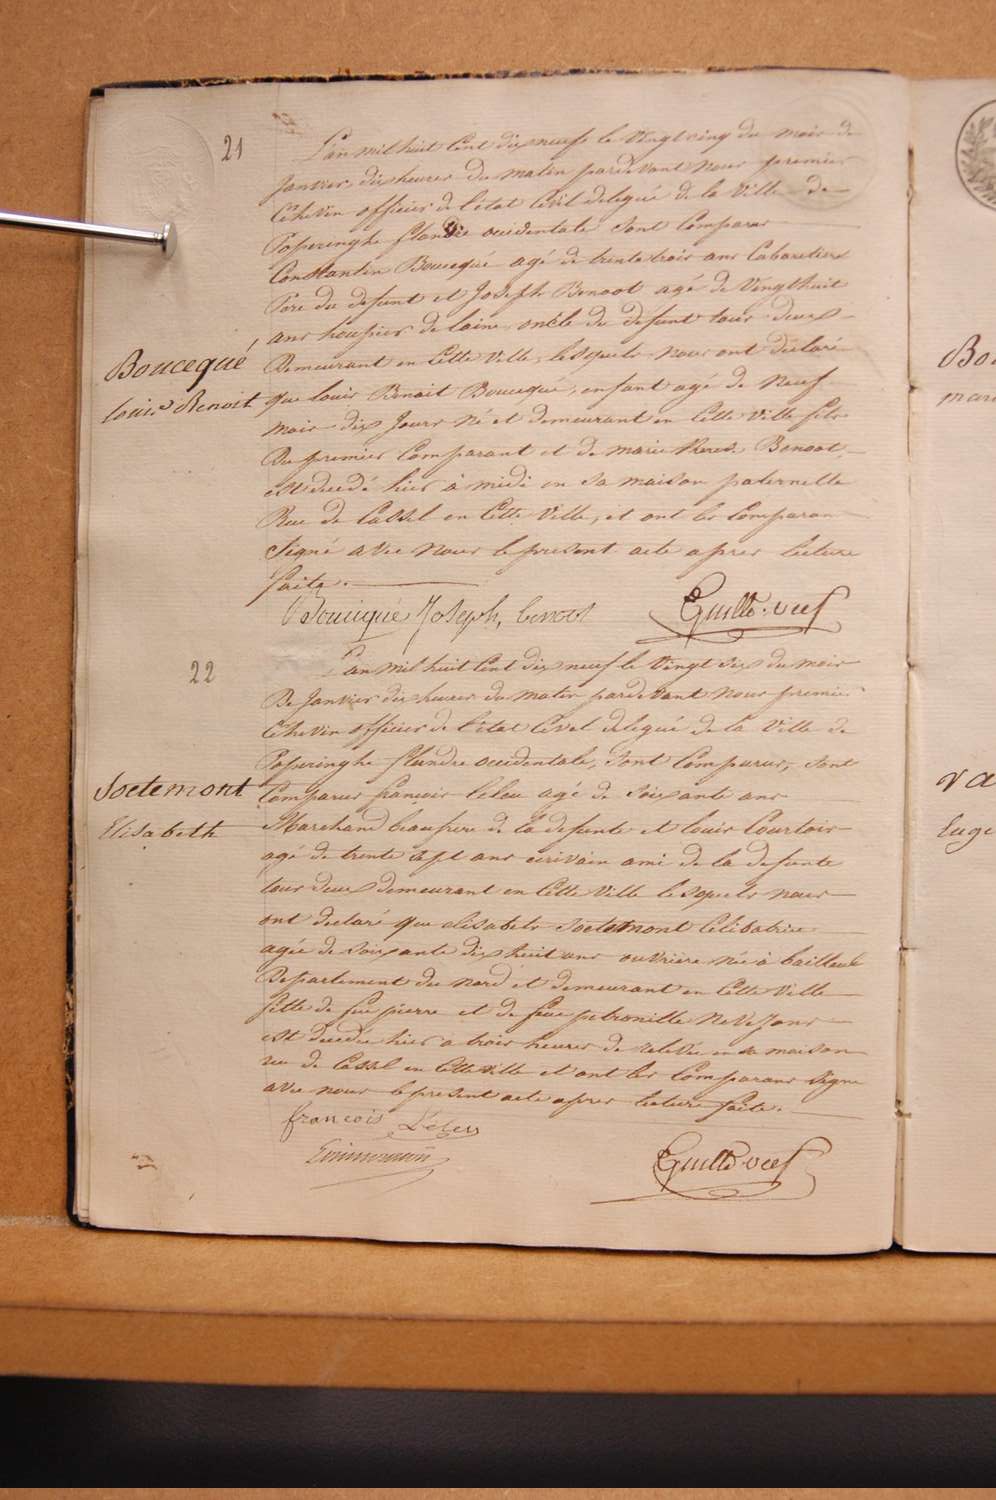 21
L'an mil huit Cent dix neuf le Vingt cinq du mois de
Janvier dix heures du matin pardevant nous premier
Echevin officier de l'état Civil delegué de la Ville de
Poperinghe flandre occidentale sont Comparus
Constantin Boucequé agé de trente trois ans Cabaretier
Pere du defunt et Joseph Benoot agé de Vingt huit
ans houpier de laine, oncle du defunt tous deux
Demeurant en Cette Ville, lesquels nous ont declaré
Boucequé,
Louis Benoit
que Louis Benoit Boucequé, enfant agé de Neuf
mois dix Jours Né et demeurant en Cette Ville fils
Du premier Comparant et de marie Benoot,
est decedé hier à midi en sa maison paternelle
Rue de Cassel en Cette Ville, et ont les Comparans
Signé avec nous le present acte apres lecture
faite.
Bouciqué Joseph, benoot
22
L'an mil huit Cent dix neuf le Vingt six du mois
De Janvier dix heures du matin pardevant nous premier
Echevin officier de l'état Civil delegué de la Ville de
Poperinghe flandre occidentale, sont Comparus, sont
Soetemont
Elisabeth
Comparus françois Leleu agé de Soixante ans
Marchand beaupere de la defunte et Louis Courtois
agé de trente sept ans ecrivain ami de la defunte
tous deux demeurant en Cette Ville lesquels nous
ont declaré que elisabeth Soetemont Celibatrice
agée de soixante dix huit ans ouvrière née à bailleul
Departement du nord et demeurant en Cette Ville
fille de feu pierre et de feue petronille
est decedée hier à trois heures de relevée en sa maison
rue de Cassel en Cette Ville et ont les Comparans Signé
avec nous le present acte apres lecture faite.
francois Leleu
Bou
mari
va
Euge